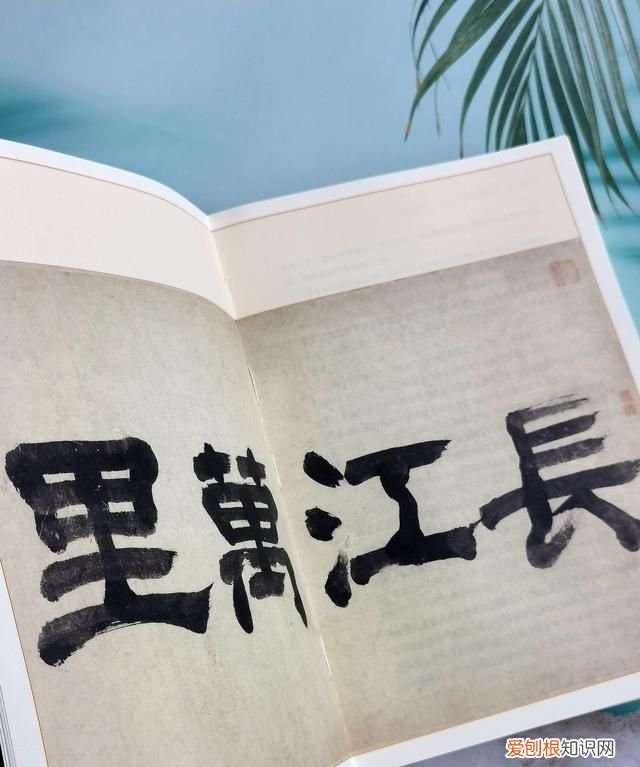 長江萬里
爱刨根知识网